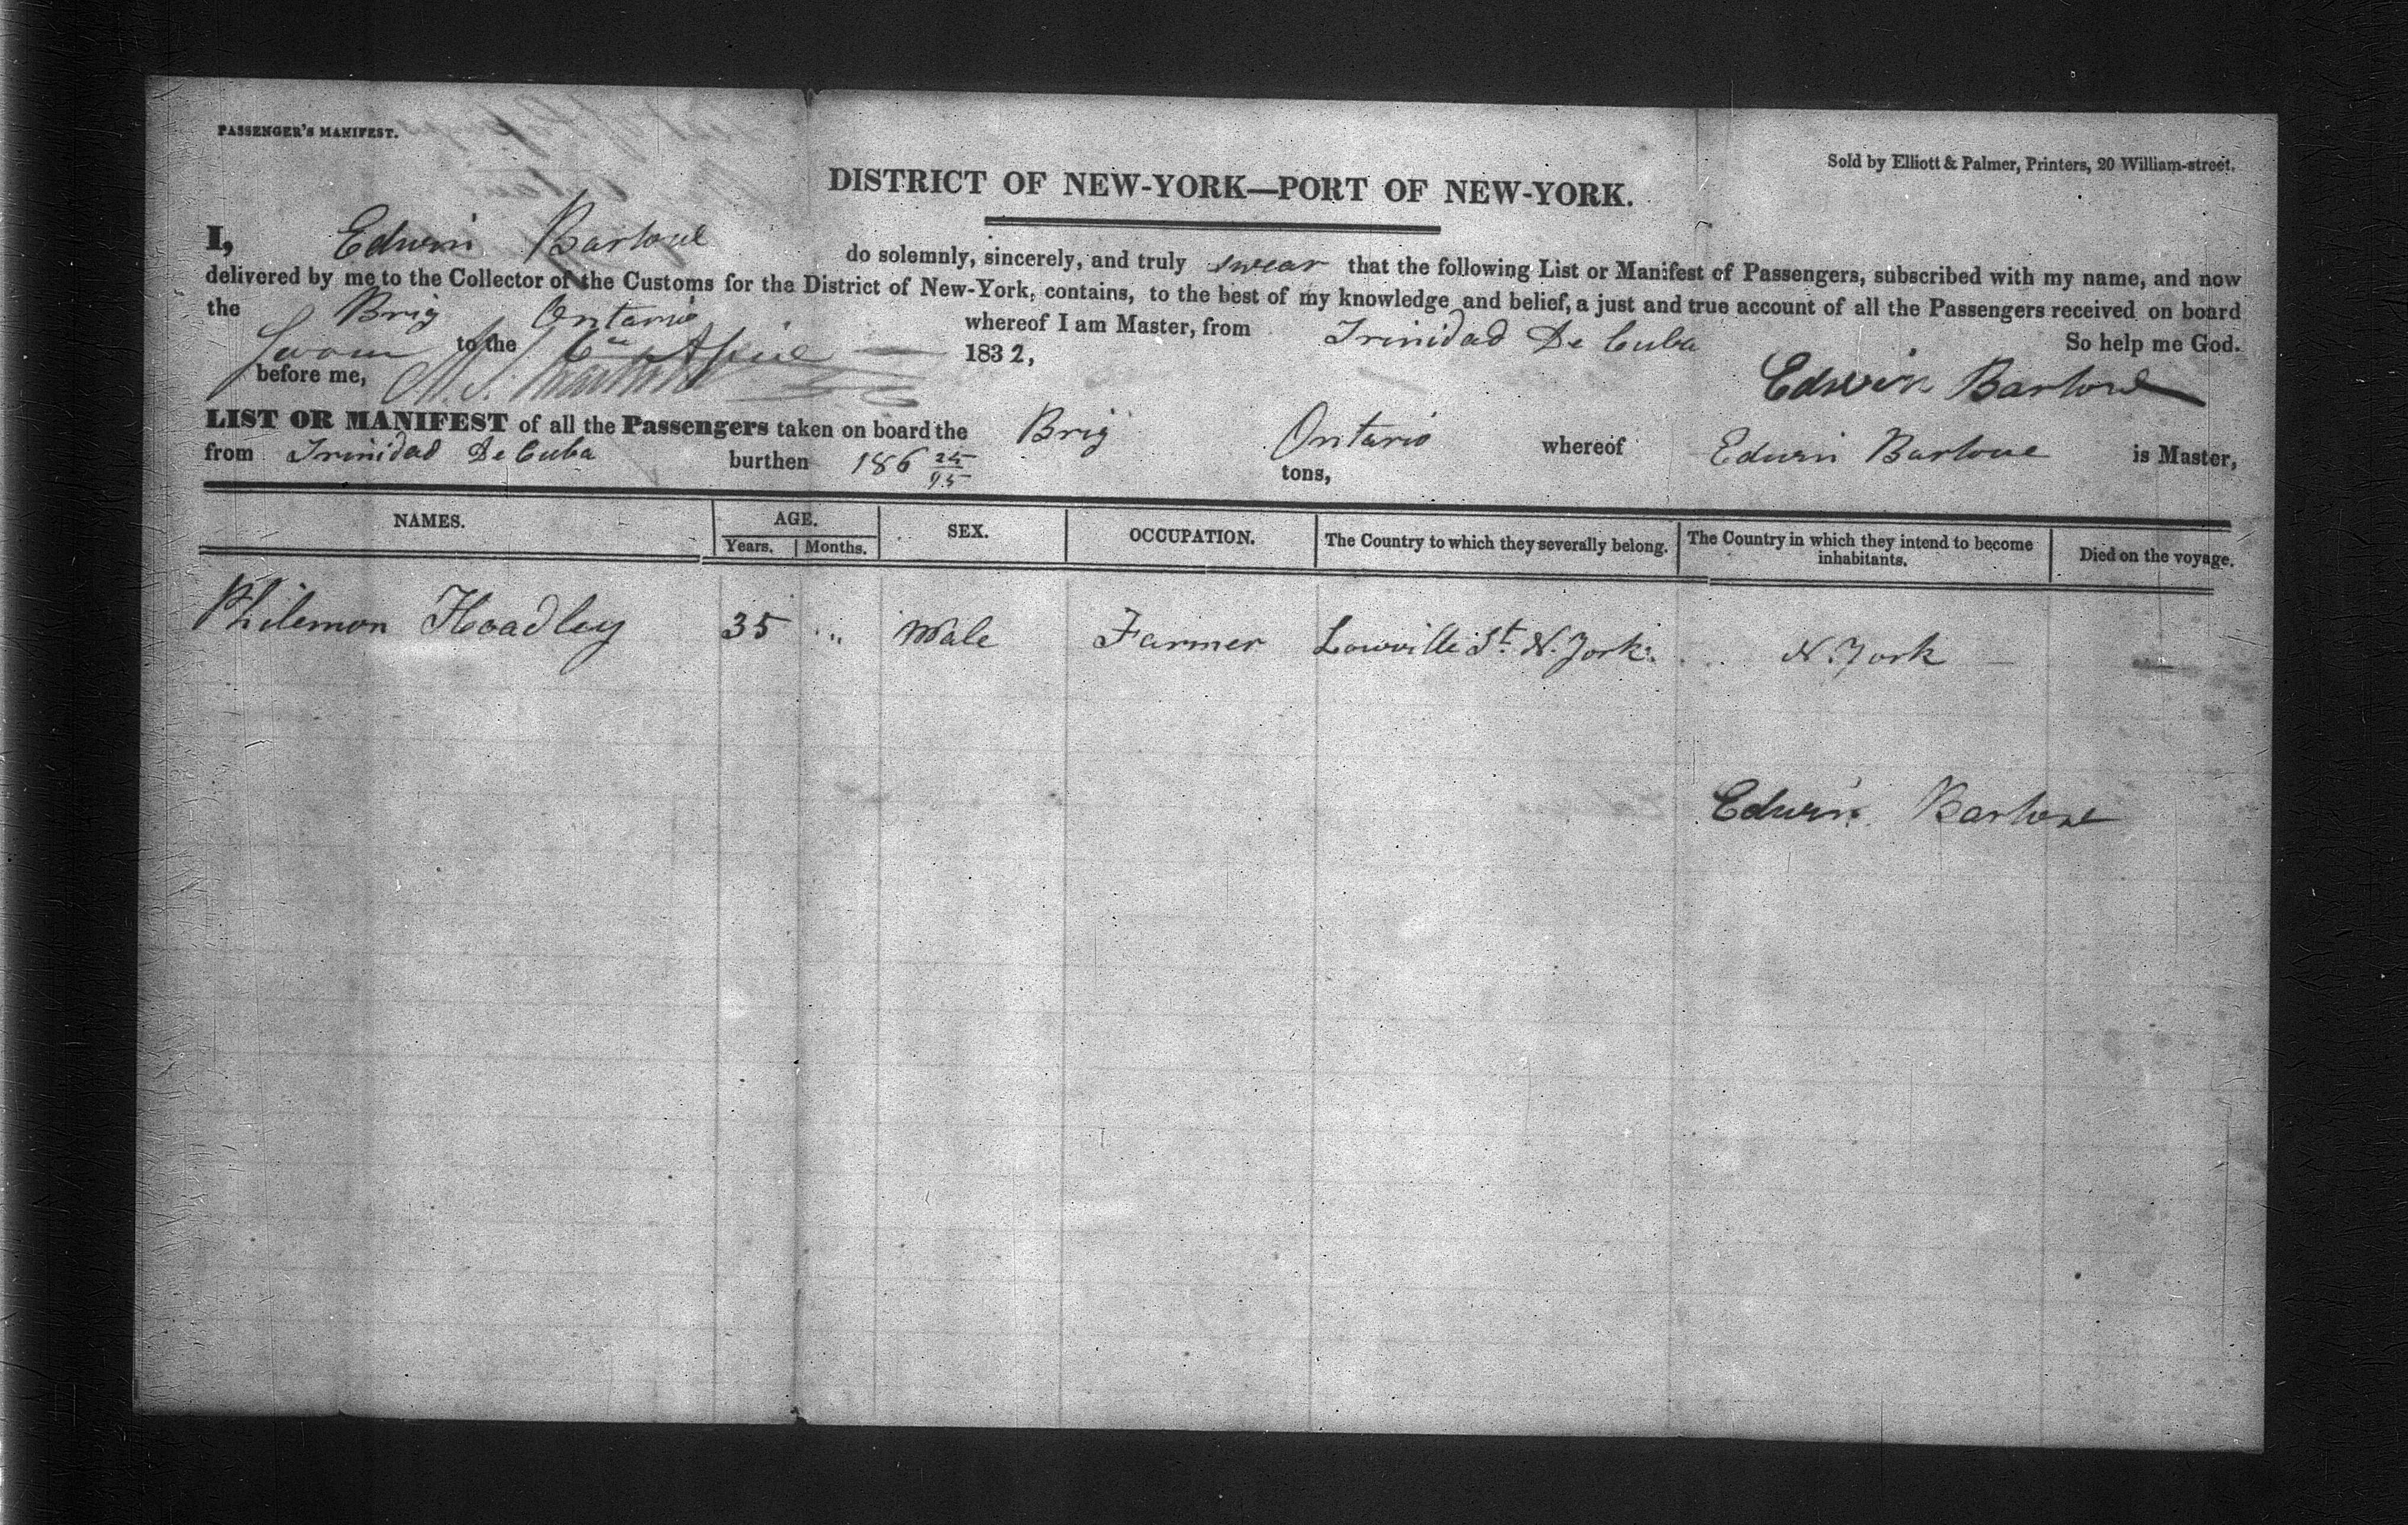 PASSENGER'S MANIFEST.
Sold by Elliott & Palmer, Printers, 20 William-street.
DISTRICT OF NEW-YORK—PORT OF NEW-YORK.
I, Edwin Barlowe do solemnly, sincerely, and truly swear that the following List or Manifest of Passengers, subscribed with my name, and now
delivered by me to the Collector of the Customs for the District of New-York, contains, to the best of my knowledge and belief, a just and true account of all the Passengers received on board
the Brig Ontario whereof I am Master, from Trinidad De Cuba
Sworn to the 6th April 1832, So help me God.
before me, Edwin Barlowe
LIST OR MANIFEST of all the Passengers taken on board the Brig Ontario whereof Edwin Barlowe is Master,
from Trinidad De Cuba burthen 186 25/95 tons,
NAMES. AGE. SEX. OCCUPATION. The Country to which they severally belong. The Country in which they intend to become inhabitants. Died on the voyage.
Years. Months.
Philemon Hoadley 35 " Male Farmer Lowville St. N. York. N. York —
Edwin Barlowe